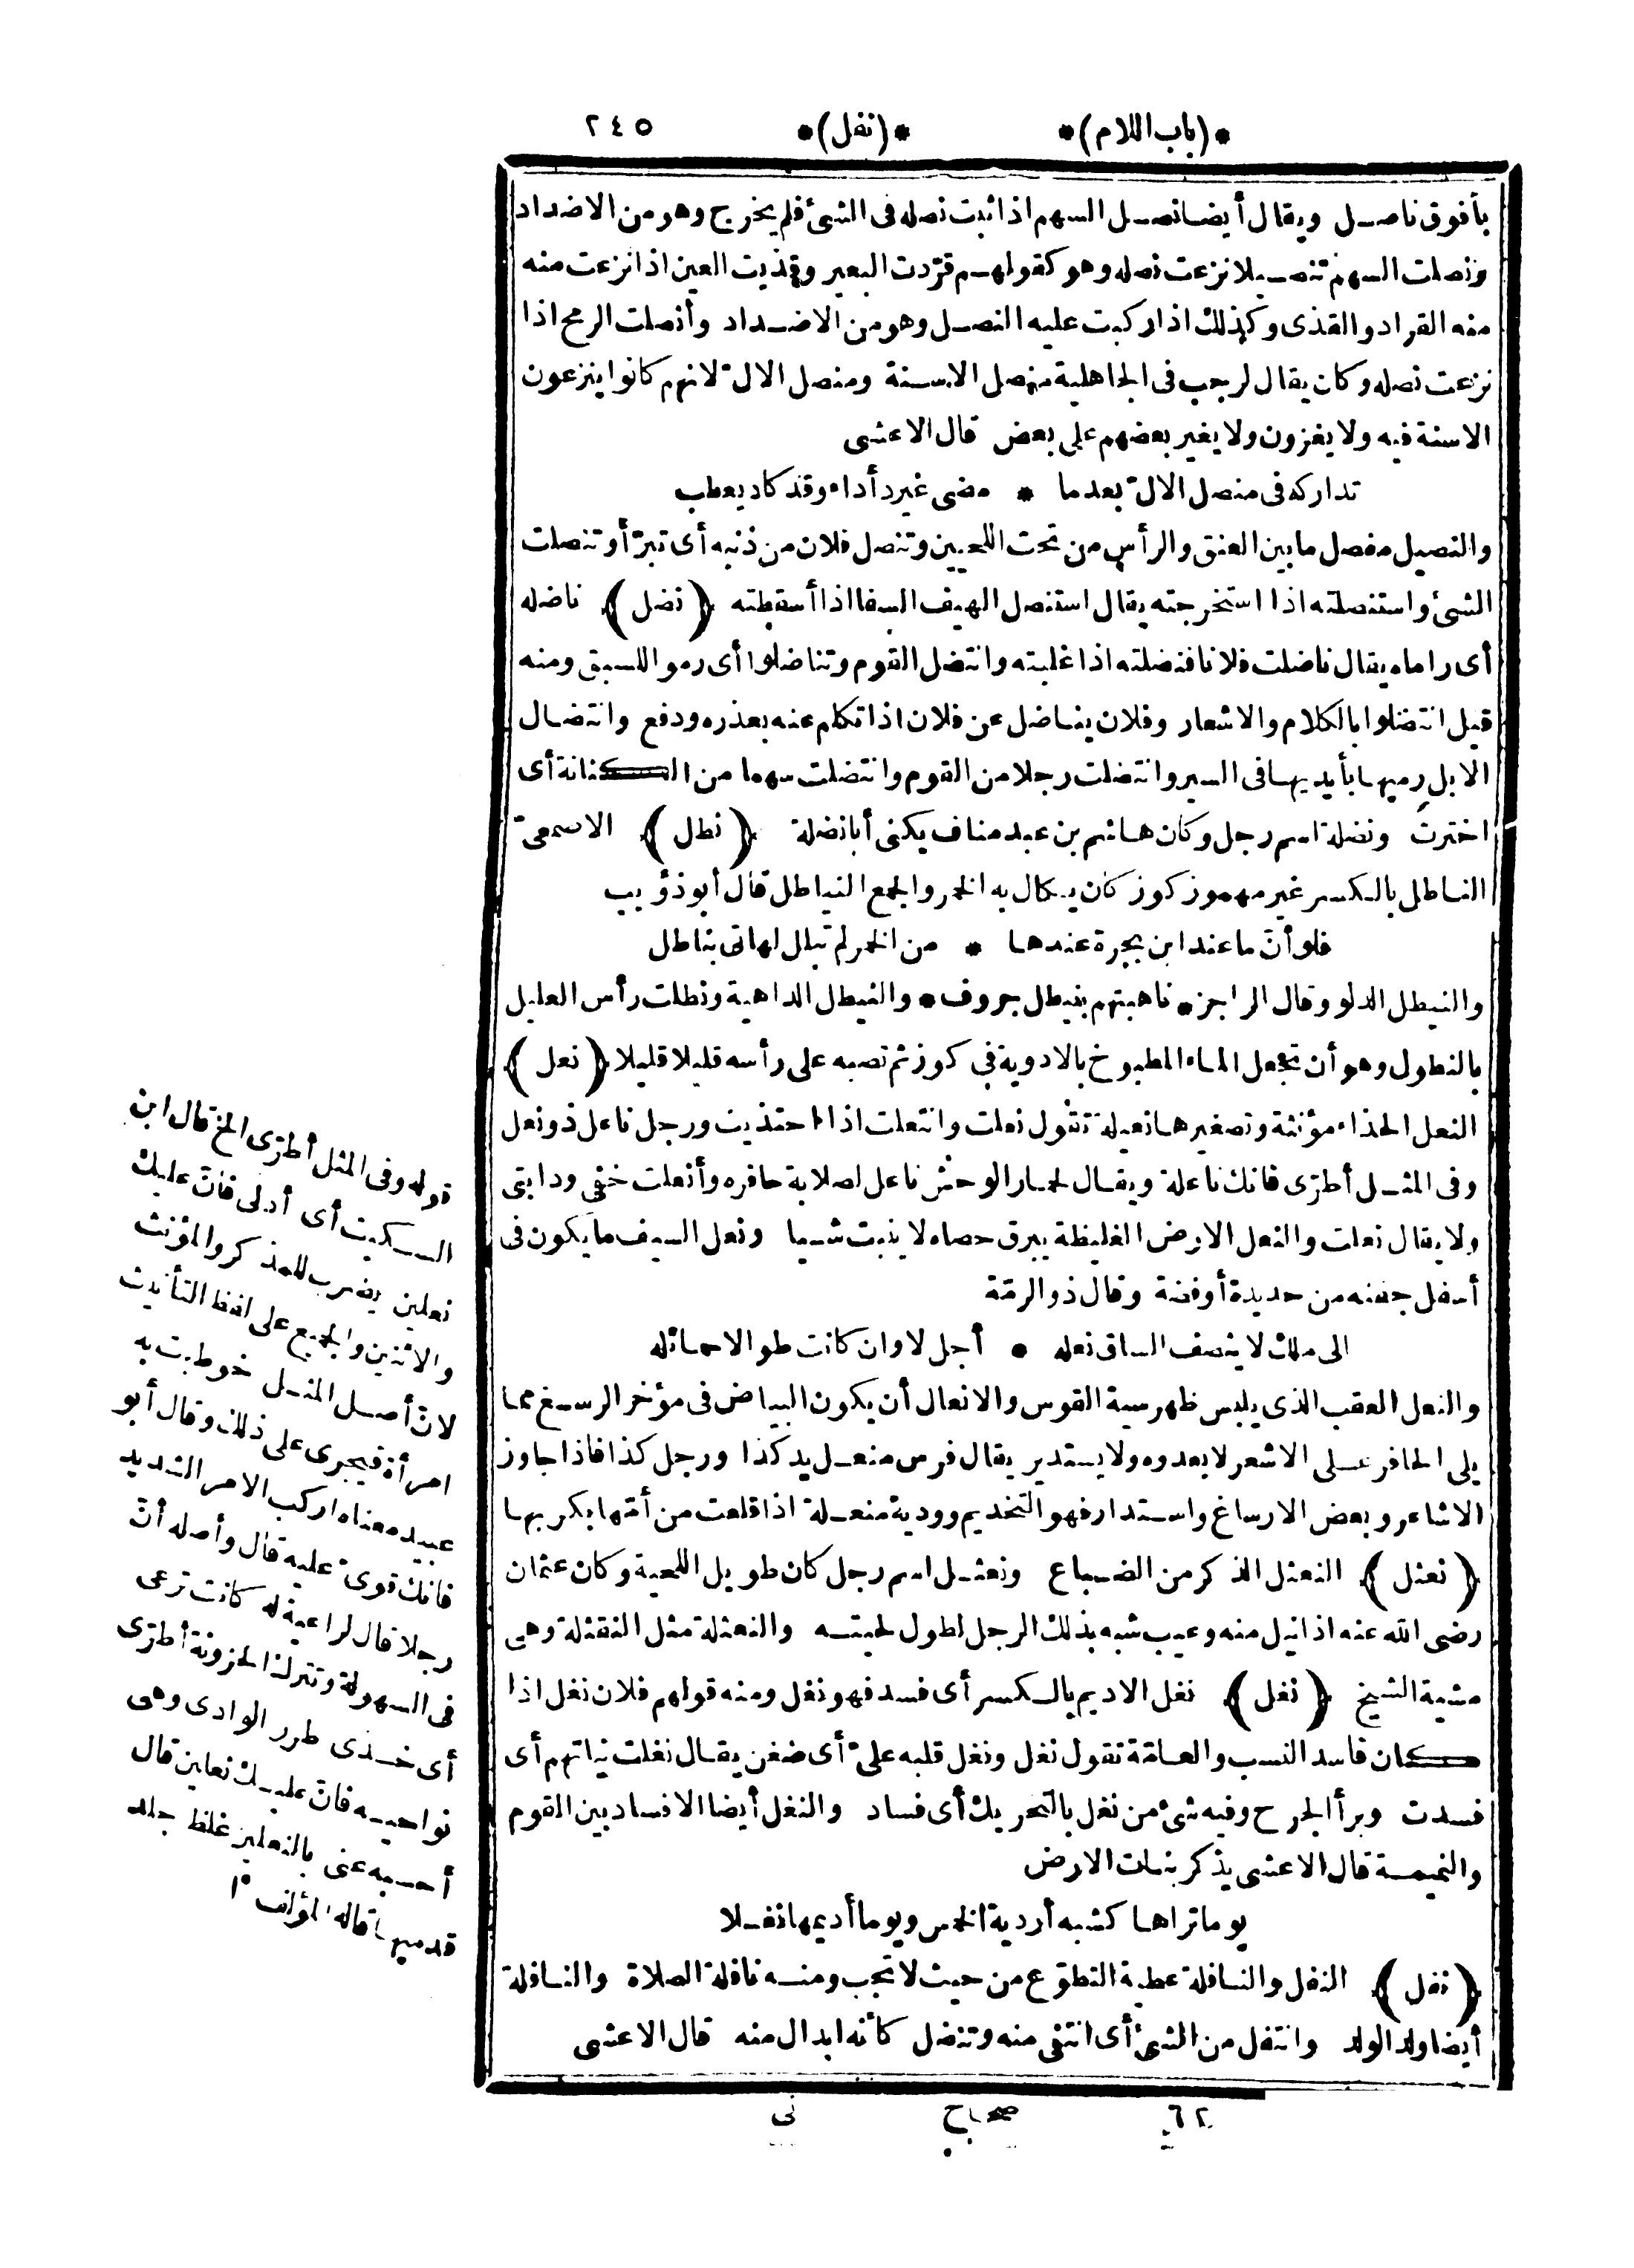 *(باب اللام)* *(نفل)* ٢٤٥
بأفوق ناصل ويقال أيضا نصل السهم اذا ثبت نصله فى الشئ فلم يخرج وهو من الاضداد
ونصلت السهم تنصيلا نزعت نصله وهو كقولهم قرّدت البعير وقذيت العين اذا نزعت منه
منه القراد والقذى وكذلك اذا ركبت عليه النصل وهو من الاضداد وأنصلت الرمح اذا
نزعت نصله وكان يقال لرجب فى الجاهلية منصل الاسنة ومنصل الالّ لانهم كانوا ينزعون
الاسنة فيه ولا يغزون ولا يغير بعضهم على بعض قال الاعشى
تداركه فى منصل الالّ بعدما * مضى غير دأداء وقد كاد يعطب
والنصيل مفصل ما بين العنق والرأس من تحت اللحيين وتنصل فلان من ذنبه أى تبرّأ وتنصلت
الشئ واستنصلته اذا استخرجته يقال استنصل الهيف السفا اذا أسقطته (نضل) ناضله
أى راماه يقال ناضلت فلانا فنضلته اذا غلبته وانتضل القوم وتناضلوا أى رموا للسبق ومنه
قيل انتضلوا بالكلام والاشعار وفلان يناضل عن فلان اذا تكلم عنه بعذره ودفع وانتضال
الابل رميها بأيديها فى السير وانتضلت رجلا من القوم وانتضلت سهما من الكنانة أى
اخترت ونضلة اسم رجل وكان هاشم بن عبد مناف يكنى أبا نضلة (نطل) الاصمعىّ
الناطل بالكسر غير مهموز كوز كان يكال به الخمر والجمع النياطل قال أبو ذؤيب
فلو أنّ ما عند ابن بجرة عندها * من الخمر لم تبلل لهاتى بناطل
والنيطل الدلو وقال الراجز * ناهبتهم بنيطل جروف * والنيطل الداهية ونطلت رأس العليل
بالنطول وهو أن تجعل الماء المطبوخ بالادوية فى كوز ثم تصبه على رأسه قليلا قليلا (نعل)
النعل الحذاء مؤنثة وتصغيرها نعيلة تقول نعلت وانتعلت اذا احتذيت ورجل ناعل ذو نعل
وفى المثل أطرّى فانك ناعلة ويقال لحمار الوحش ناعل لصلابة حافره وأنعلت خفى ودابتى
ولا يقال نعلت والنعل الارض الغليظة يبرق حصاه لا ينبت شيا ونعل السيف ما يكون فى
أسفل جفنه من حديدة أو فضة وقال ذو الرمّة
الى ملك لا ينصف الساق نعله * أجل لا وان كانت طوالا حمائله
والنعل العقب الذى يلبس ظهر سية القوس والانعال أن يكون البياض فى مؤخر الرسغ مما
يلى الحافر على الاشعر لا يعدوه ولا يستدير يقال فرس منعل يد كذا ورجل كذا فاذا جاوز
الاشاعر وبعض الارساغ واستدار فهو التخديم وودية منعلة اذا قلعت من أمّها بكربها
(نعثل) النعثل الذكر من الضباع ونعثل اسم رجل كان طويل اللحية وكان عثمان
رضى الله عنه اذا نيل منه وعيب شبه بذلك الرجل لطول لحيته والنعثلة مثل النقثلة وهى
مشية الشيخ (نغل) نغل الاديم بالكسر أى فسد فهو نغل ومنه قولهم فلان نغل اذا
كان فاسد النسب والعامّة تقول نغل ونغل قلبه علىّ أى ضغن يقال نغلت نياتهم أى
فسدت وبرأ الجرح وفيه شئ من نغل بالتحريك أى فساد والنغل أيضا الافساد بين القوم
والنميمة قال الاعشى يذكر نبات الارض
يوما تراها كشبه أردية الخمس ويوما أديمها نغلا
(نفل) النفل والنافلة عطية التطوّع من حيث لا تجب ومنه نافلة الصلاة والنافلة
أيضا ولد الولد وانتفل من الشئ أى انتفى منه وتنضل كأنه ابدال منه قال الاعشى
٦٢ صحاح نى
قوله وفى المثل أطرّى الخ قال ابن
السكيت أى أدلى فانّ عليك
نعلين يضرب للمذكر والمؤنث
والاثنين والجميع على لفظ التأنيث
لانّ أصل المثل خوطبت به
امرأة فيجرى على ذلك وقال أبو
عبيد معناه اركب الامر الشديد
فانك قوىّ عليه قال وأصله أنّ
رجلا قال لراعية له كانت ترعى
فى السهولة وتترك الحزونة أطرّى
أى خذى طرر الوادى وهى
نواحيه فانّ عليك نعلين قال
أحسبه عنى بالنعلين غلظ جلد
قدميها قاله المؤلف اه